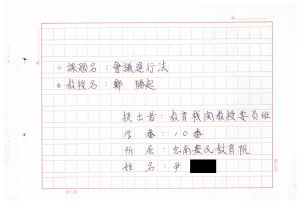 ○ 課題名 : 會議進行法
○ 敎授名 : 鄭 勝起
提出者 : 敎育機関敎授要員班
学 番 : 10番
所 屬 : 忠南農民敎育院
姓 名 : 尹